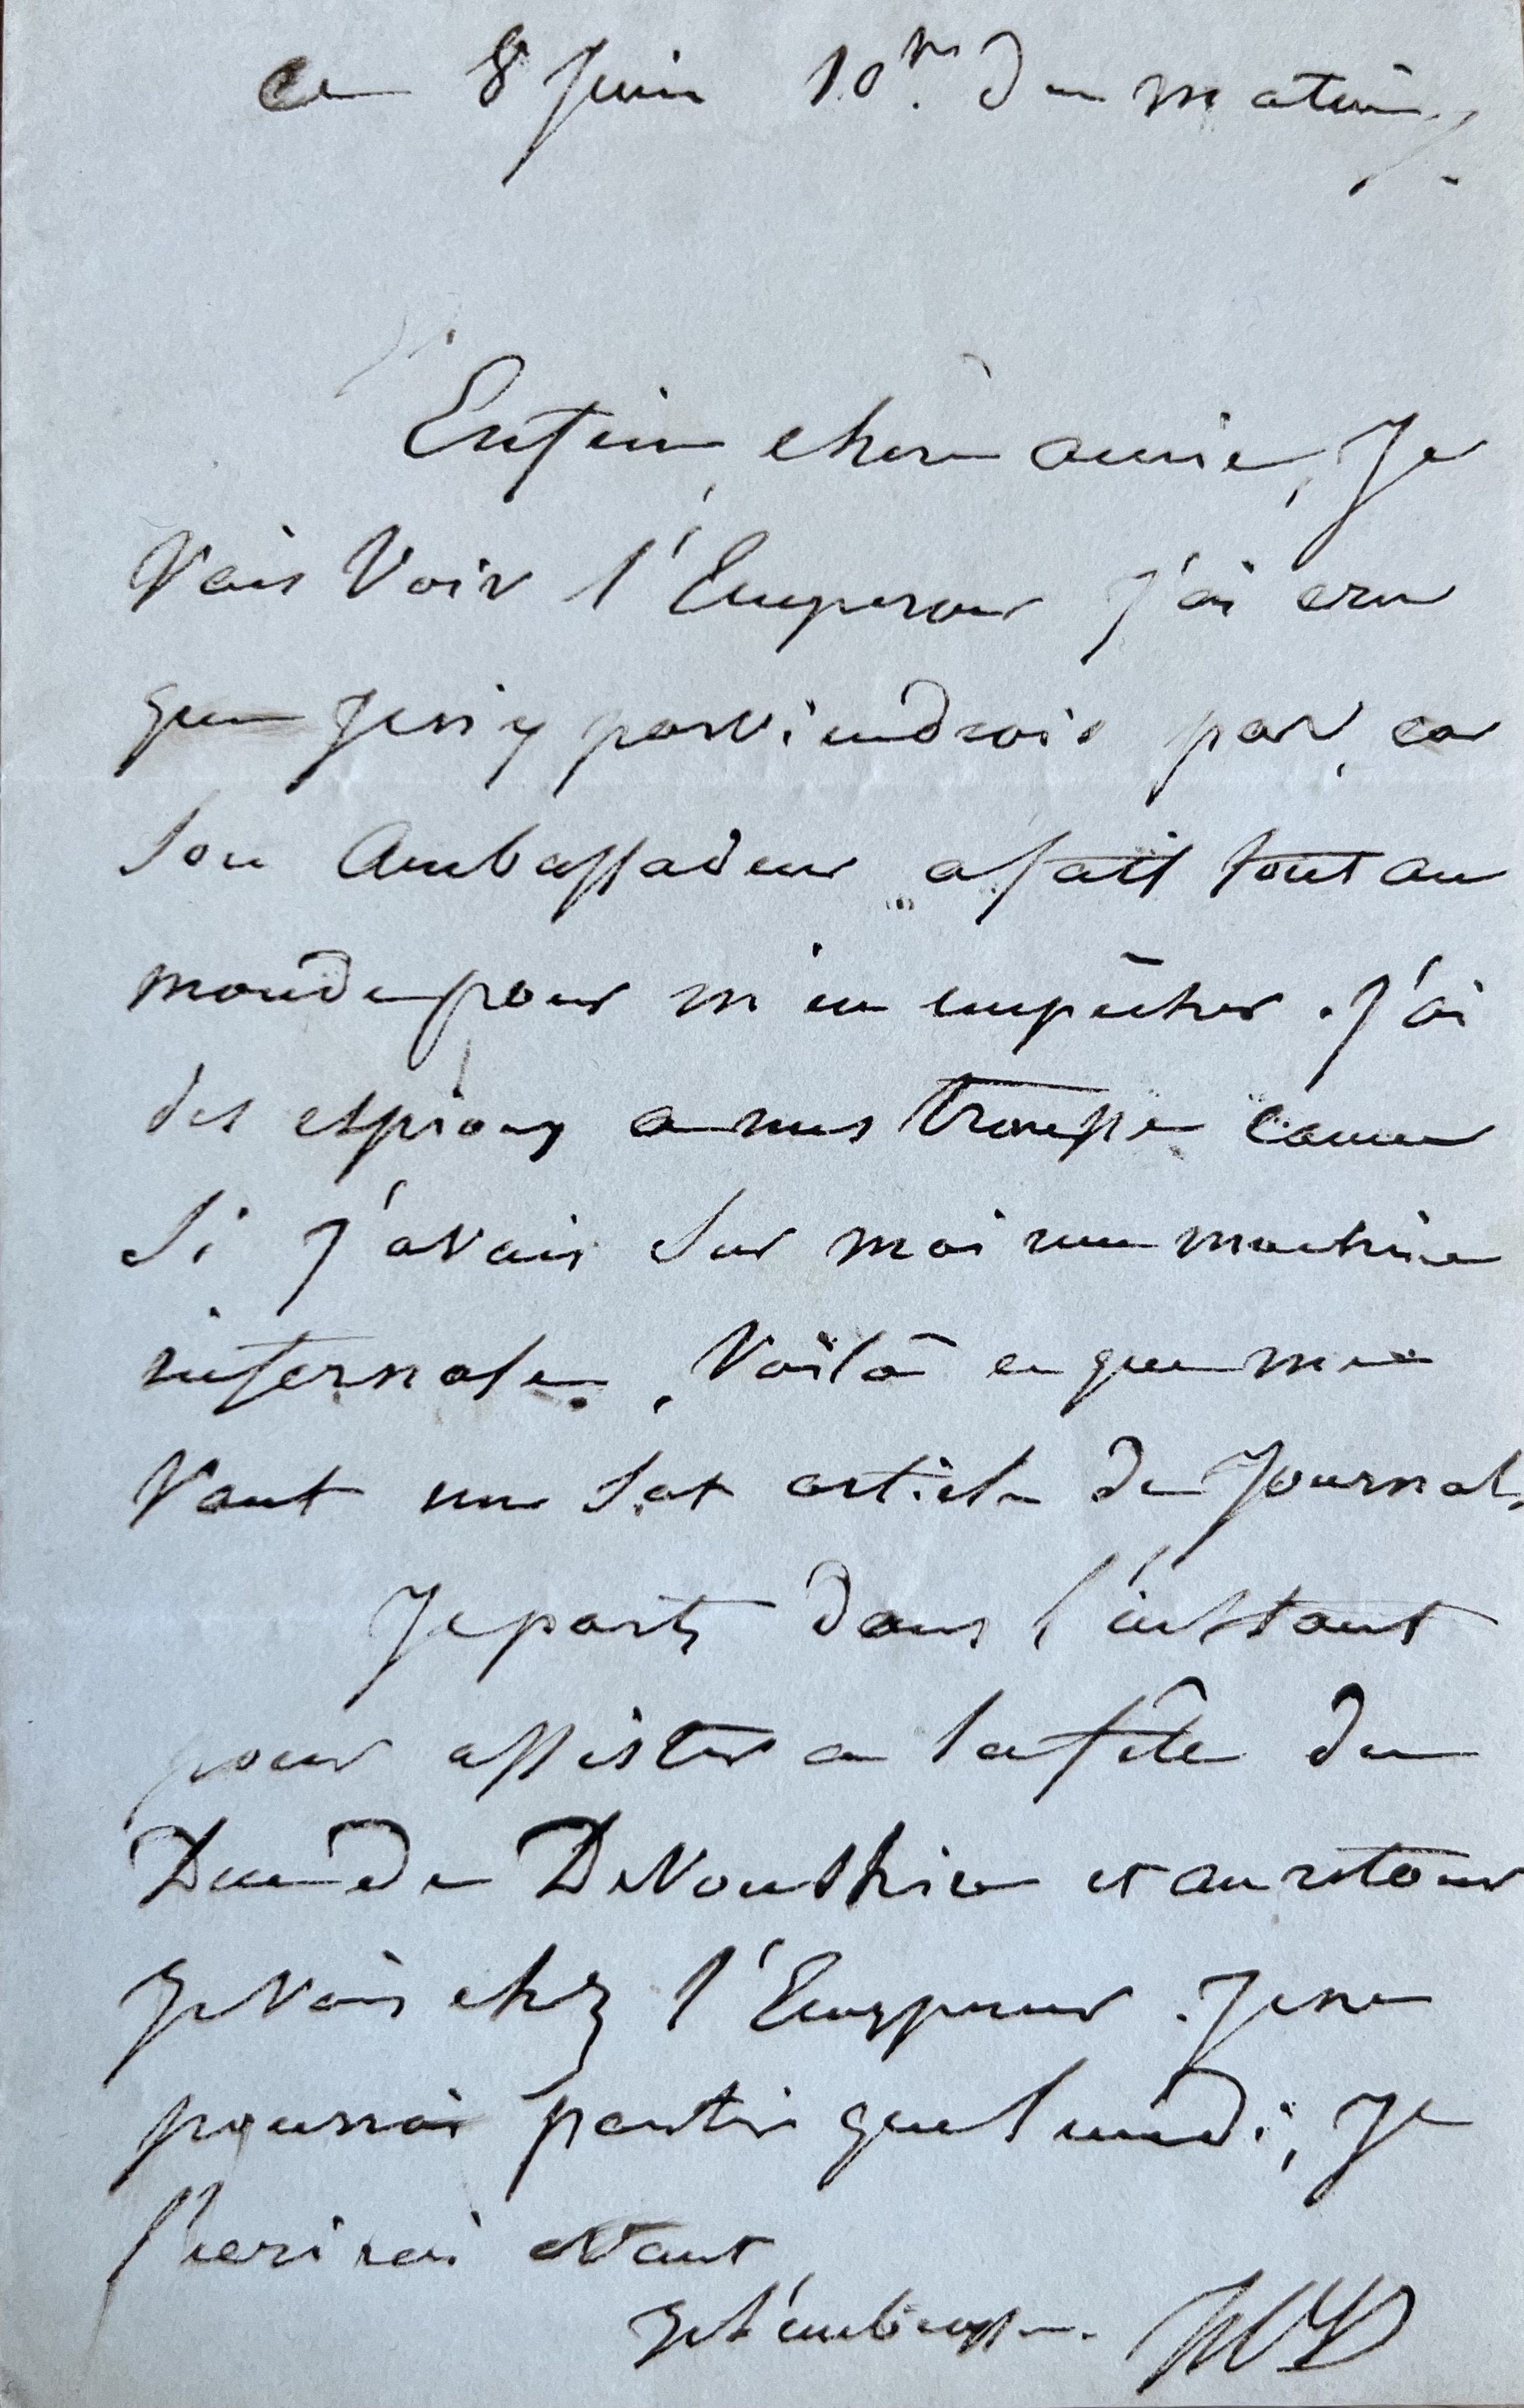 ce 8 Juin 10h. du matin
Enfin, chère amie, Je
Vais Voir l'Empereur J'ai cru
que Je n'y parviendrais pas, car
Son Ambassadeur a fait tout au
monde pour m'en empêcher. J'ai
des espions a mes trousse comme
Si J'avais Sur moi une machine
infernale. Voilà ce que me
Vaut un Sot article de Journal.
Je parts dans l'instant
pour assister a la fête du
Duc de DeVonshire et au retour
Je Vais chez l'Empereur. Je ne
pourrai partir que lundi, Je
t'ecrirai aVant
Je t'embrasse.